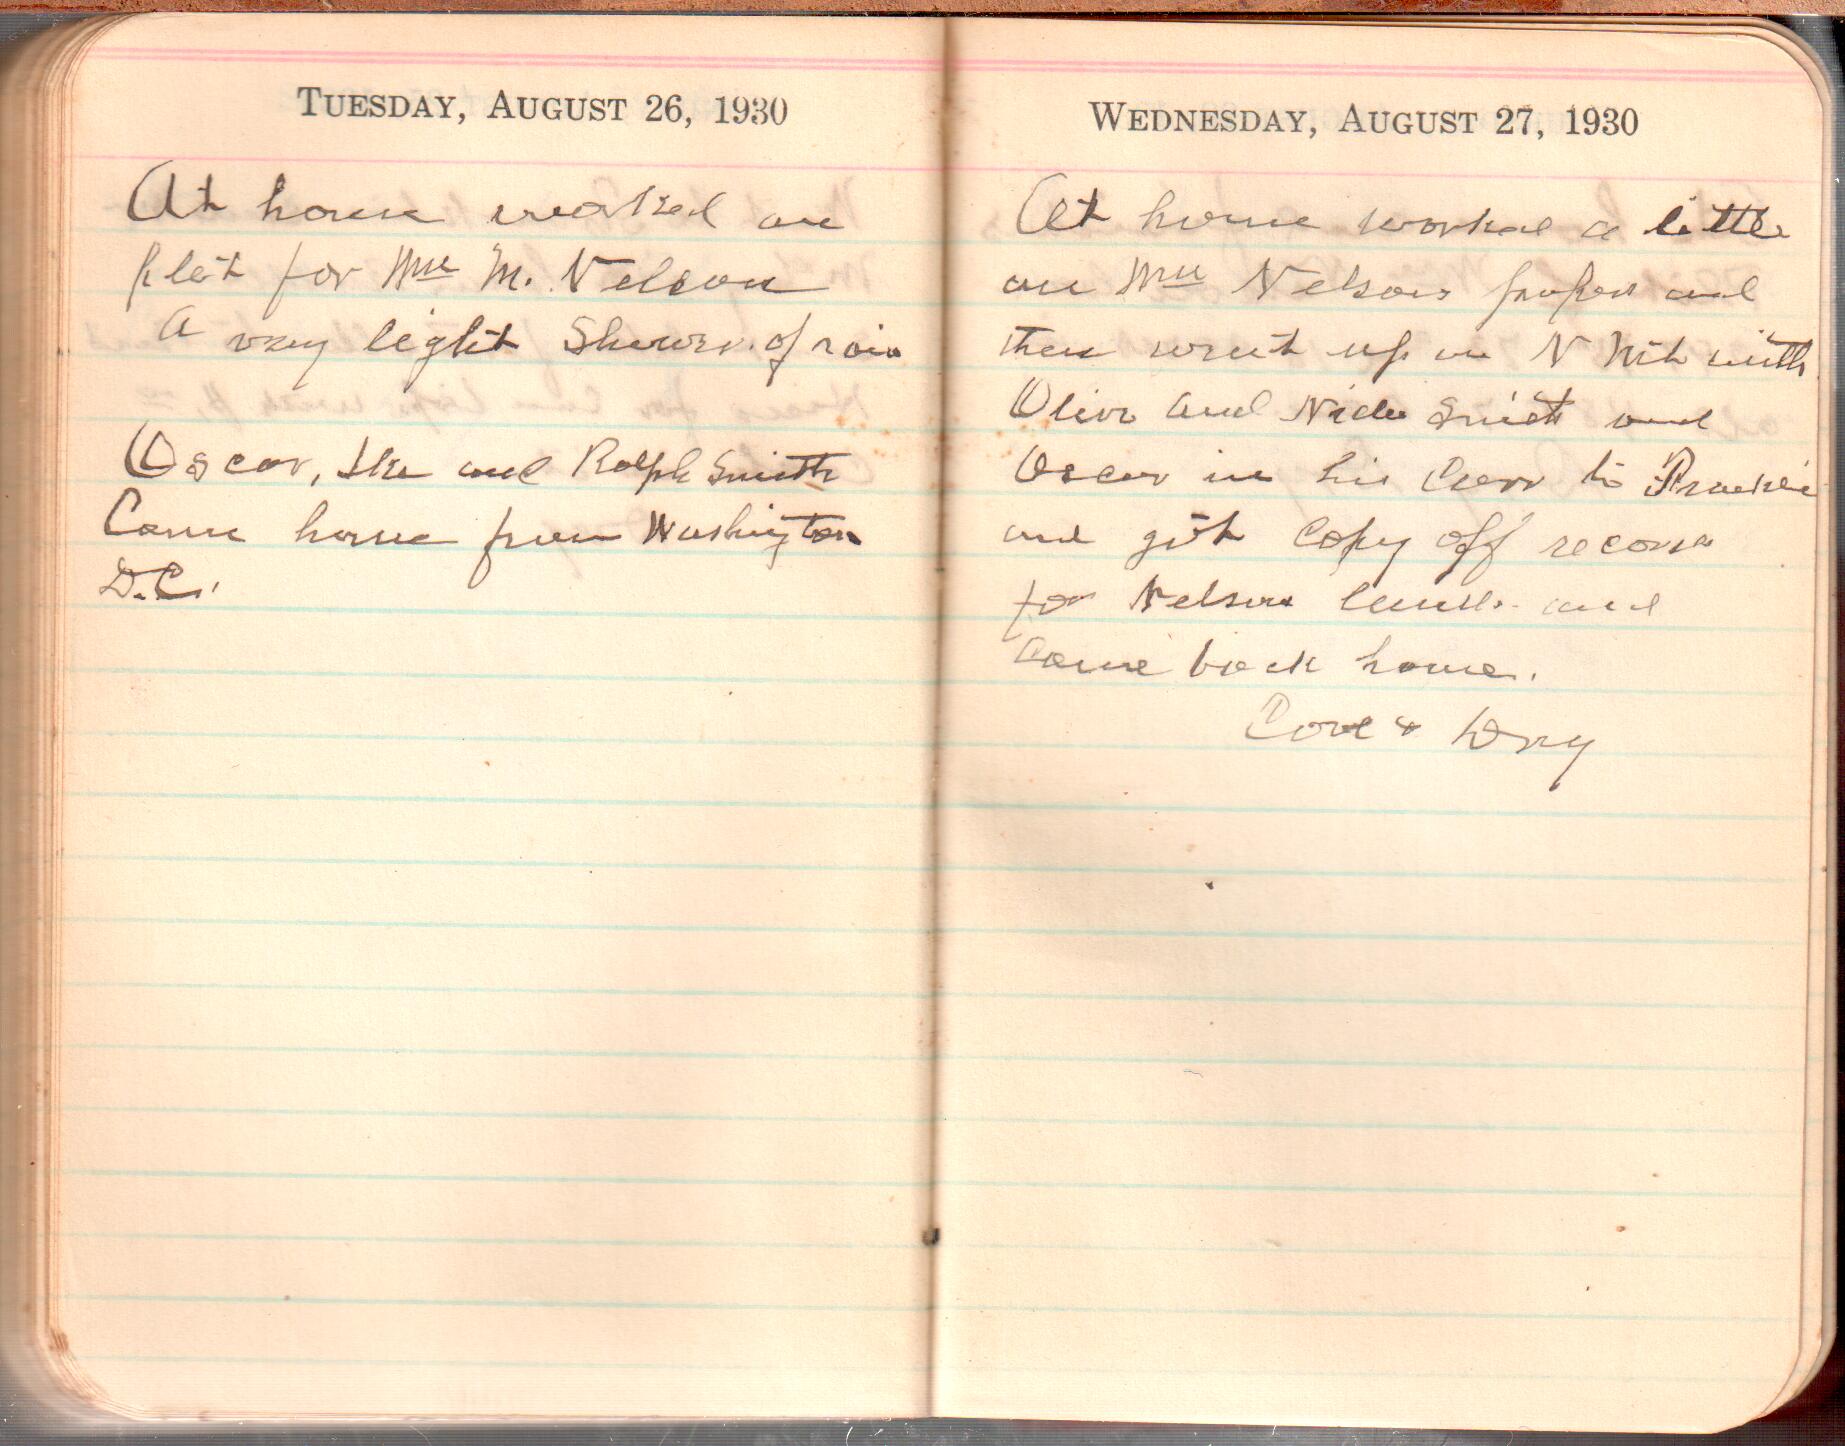 TUESDAY, AUGUST 26, 1930
At home worked on
plat for Mrs M. Nelson
A very light Shower of rain
Oscar, Ike and Ralph Smith
Came home from Washington
D.C.
WEDNESDAY, AUGUST 27, 1930
At home worked a little
on Mrs Nelsons papers and
then went up on N with
Oliver and Smith and
Oscar in his Carr to
and got Copy off records
for Nelson lands and
Came back home.
& Dry